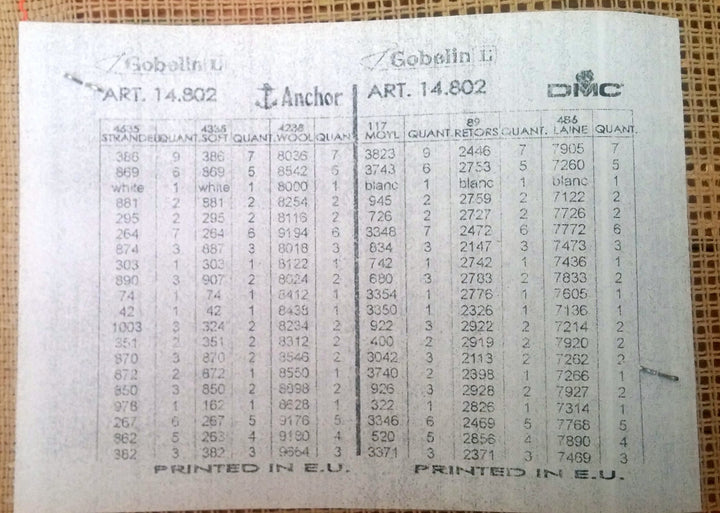 Gobelin L
ART. 14.802
Anchor
4635 4335 4238
STRANDED QUANT. SOFT QUANT. WOOL QUAN
386 9 386 7 8036 7
869 6 869 5 8542 5
white 1 white 1 8000 1
881 2 881 2 8254 2
295 2 295 2 8116 2
264 7 264 6 9194 6
874 3 887 3 8018 3
303 1 303 1 8122 1
890 3 907 2 8024 2
74 1 74 1 8412 1
42 1 42 1 8438 1
1003 3 324 2 8234 2
351 2 351 2 8312 2
870 3 870 2 8546 2
872 2 872 1 8550 1
850 3 850 2 8898 2
978 1 162 1 8628 1
267 6 267 5 9176 5
862 5 263 4 9180 4
382 3 382 3 9664 3
PRINTED IN E.U.
Gobelin L
ART. 14.802
DMC
117 89 486
MOYL QUANT. RETORS QUANT. LAINE QUANT.
3823 9 2446 7 7905 7
3743 6 2753 5 7260 5
blanc 1 blanc 1 blanc 1
945 2 2759 2 7122 2
726 2 2727 2 7726 2
3348 7 2472 6 7772 6
834 3 2147 3 7473 3
742 1 2742 1 7436 1
680 3 2783 2 7833 2
3354 1 2776 1 7605 1
3350 1 2326 1 7136 1
922 3 2922 2 7214 2
400 2 2919 2 7920 2
3042 3 2113 2 7262 2
3740 2 2398 1 7266 1
926 3 2928 2 7927 2
322 1 2826 1 7314 1
3346 6 2469 5 7768 5
520 5 2856 4 7890 4
3371 3 2371 3 7469 3
PRINTED IN E.U.